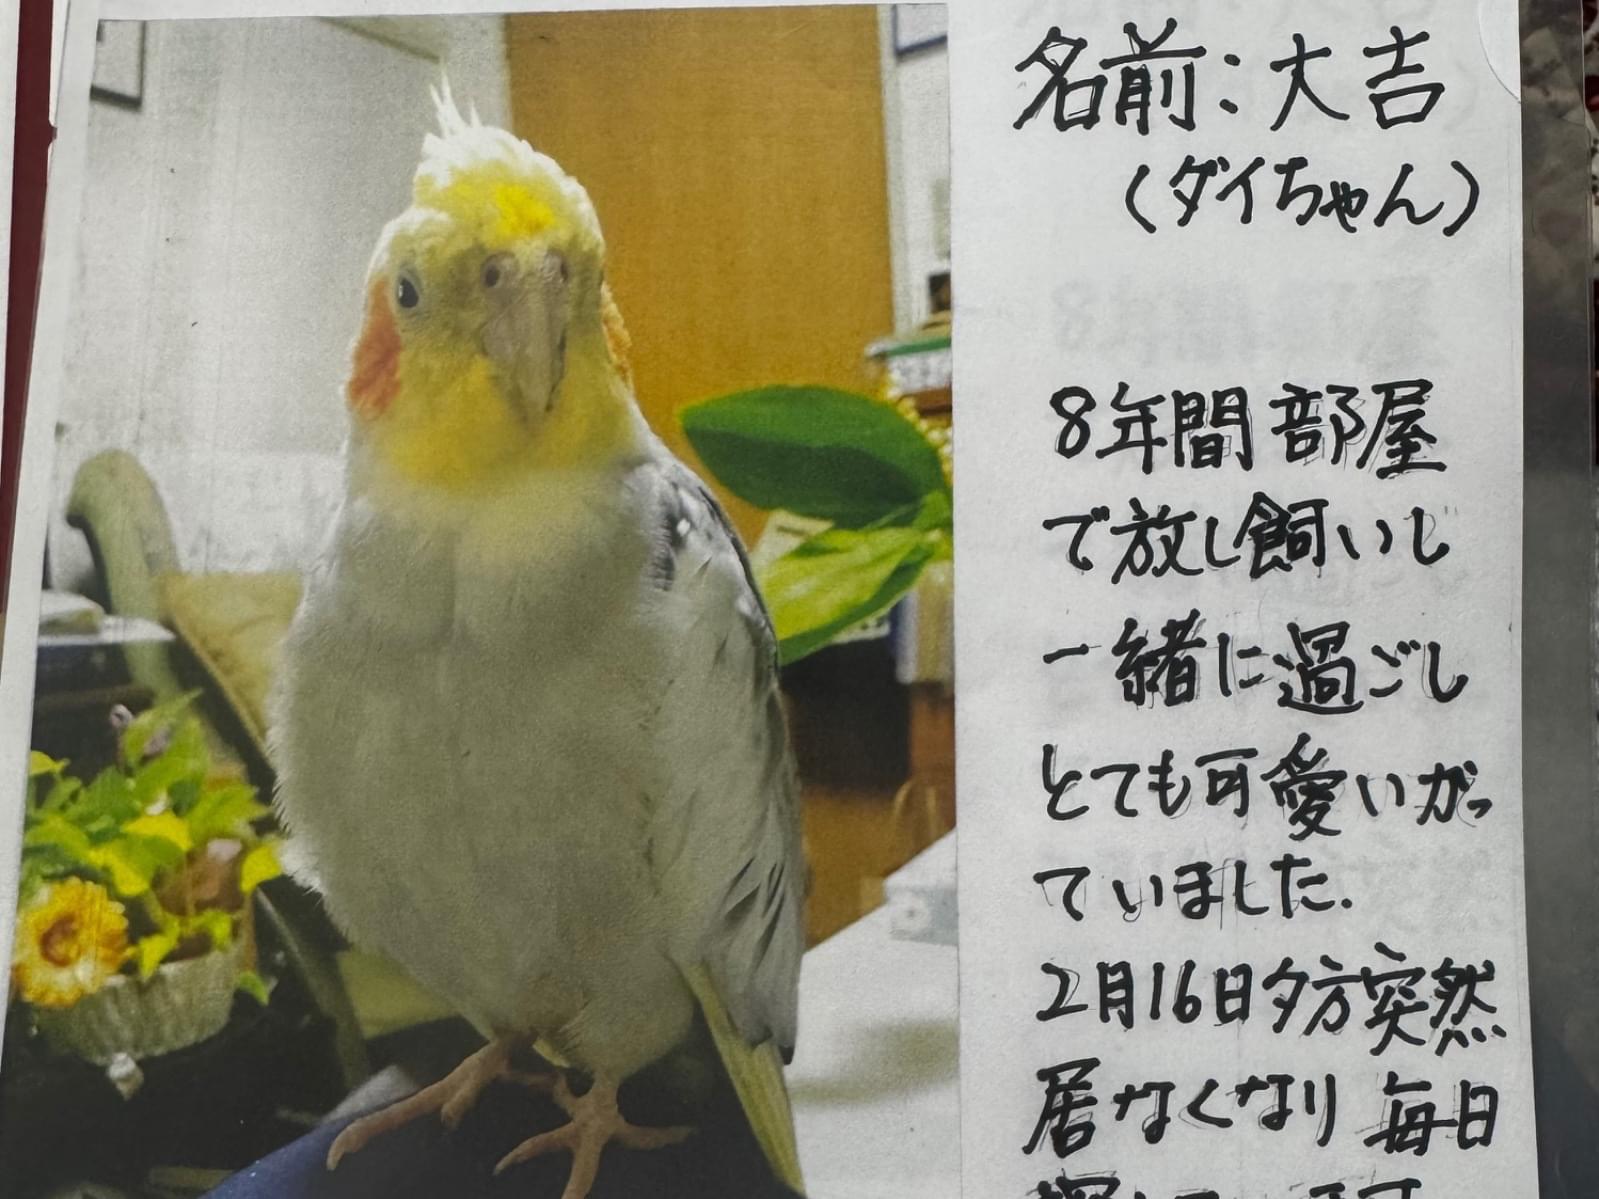 名前：大吉
(ダイちゃん)
8年間部屋
で放し飼いし
一緒に過ごし
とても可愛いがっ
ていました.
2月16日夕方突然
居なくなり毎日